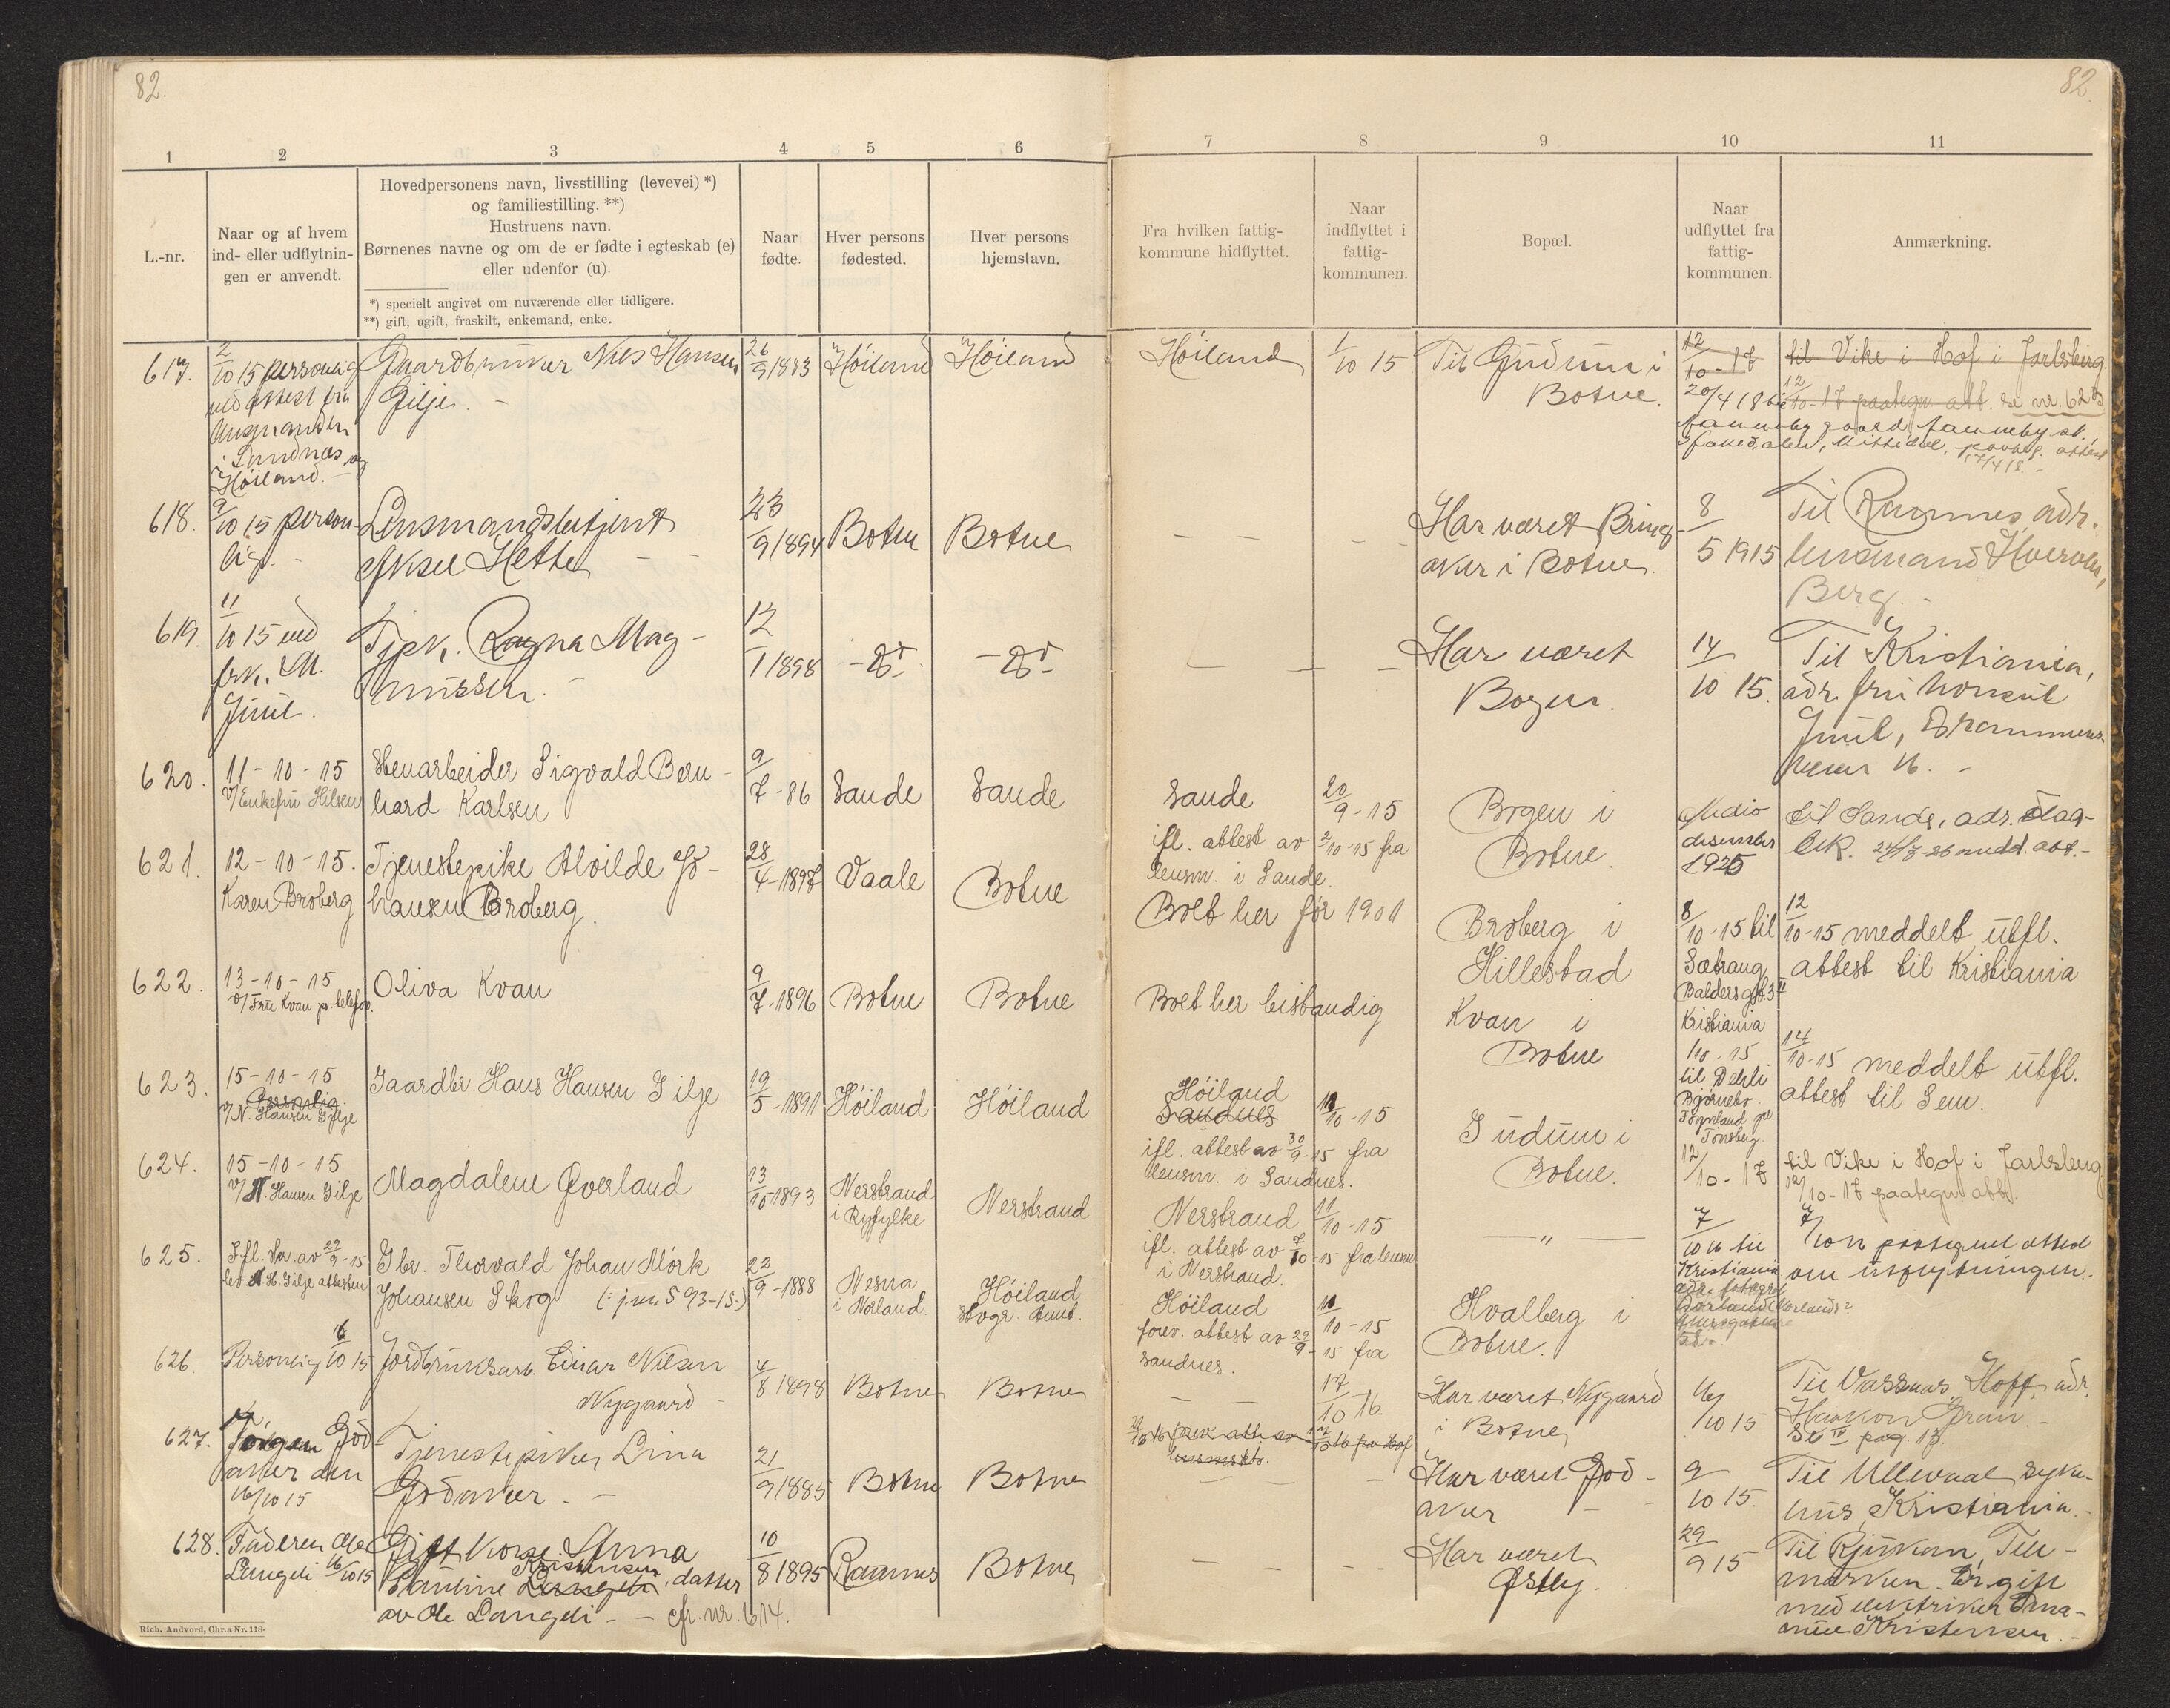 82.
82.
1 2 3 4 5 6 7 8 9 10 11
L.-nr.
Naar og af hvem
ind- eller udflytnin-
gen er anvendt.
Hovedpersonens navn, livsstilling (levevei) *)
og familiestilling. **)
Hustruens navn.
Børnenes navne og om de er fødte i egteskab (e)
eller udenfor (u).
*) specielt angivet om nuværende eller tidligere.
**) gift, ugift, fraskilt, enkemand, enke.
Naar
fødte.
Hver persons
fødested.
Hver persons
hjemstavn.
Fra hvilken fattig-
kommune hidflyttet.
Naar
indflyttet i
fattig-
kommunen.
Bopæl.
Naar
udflyttet fra
fattig-
kommunen.
Anmærkning.
617.
2/10 15 personlig
ved attest fra
i Sandnes og
Høiland.
Gaardbruker Nils Hansen
Gilje.
26/9 1883
Høiland
Høiland
Høiland
1/10 15
Til Gudum i
Botne.
12/10-17
20/4 18
til Vike i Hof i Jarlsberg
12/10-17 paategn. att. se nr. 623
618.
9/10 15 person-
lig.
Lensmandsbetjent
Aksel Hette
23/9 1894
Botne
Botne
Har været Bring-
aker i Botne.
8/5 1915
Til Ramnes, adr.
lensmand Hverven,
Berg.
619.
11/10 15 ved
frk. M.
Juul.
Tjpk. Ragna Mag-
nussen.
12/1 1898
- Do -
- Do -
Har været
Bogen.
14/10 15.
Til Kristiania,
adr. fru konsul
Juul, Drammens-
veien 16.
620.
11-10-15
v/ Enkefru Hilsen
Stenarbeider Sigvald Bern-
hard Karlsen
9/7-86
Sande
Sande
Sande
20/9-15
ifl. attest av 2/10-15 fra
lensm. i Sande.
Bogen i
Botne.
Medio
desember
1925
til Sande, adr. Slag-
621.
12-10-15.
Karen Broberg
Tjenestepike Alvilde Jo-
hansen Broberg.
28/4-1897
Vaale
Botne
Boet her før 1901
Broberg i
Hillestad
8/10-15 til
Sætrang
Baldersgt. 3 II
Kristiania
12/10-15 meddelt utfl.
attest til Kristiania
622.
13-10-15
v/ Fru Kvan pr. telefon.
Oliva Kvan
9/7-1896
Botne
Botne
Boet her bestandig
Kvan i
Botne
1/10-15
til Dehli
Bjørnebo
Tønsberg.
14/10-15 meddelt utfl.
attest til Sem.
623.
15-10-15
Personlig.
v/ N. Hansen Gilje
Gaardbr. Hans Hansen Gilje
19/5-1891
Høiland
Høiland
Høiland
Sandnes
11/10-15
ifl. attest av 30/9-15 fra
lensm. i Sandnes.
Gudum i
Botne.
12/10-17
til Vike i Hof i Jarlsberg
12/10-17 paategn. att.
624.
15-10-15
v/ N. Hansen Gilje
Magdalene Øverland
13/10 1893
Nerstrand
i Ryfylke
Nerstrand
Nerstrand
11/10-15
ifl. attest av 7/10-15 fra lensm.
i Nerstrand.
— " —
7/10 16 til
Kristiania
7/10 16 paategnet attest
om utflytningen.
625.
Gbr. Thorvald Johan Mørk
Johansen Skog (: j.nr. 593-15.)
22/9-1888
Nesna
i Norland.
Høiland
Høiland
11/10-15
forev. attest av 29/9-15 fra
Sandnes.
Hvalberg i
Botne.
626.
Personlig 16/10 15
Jordbruksarb. Einar Nilsen
Nygaard
4/8 1898
Botne
Botne
17/10 16.
Har været Nygaard
i Botne
16/10 15
Til Vassaas, Hoff, adr.
Haakon Gran.
Se IV pag. 17.
627.
Jørgen God-
aker den
16/10 15
Tjenestepike Lina
Godaker.
21/9 1885
Botne
Botne
Har været God-
aker
9/10 15.
Til Ullevaal syke-
hus, Kristiania.
628.
Faderen Ole
Langeli 16/10 15
Gift kone Anna
Kristensen
Pauline Langeli, datter
av Ole Langeli - cfr. nr. 614.
10/8 1895
Ramnes
Botne
Har været
Østby.
29/9 15
Til Rjukan, Tele-
marken. Er gift
med elektriker Ema-
nuel Kristensen.
Rich. Andvord, Chr.a Nr. 118-